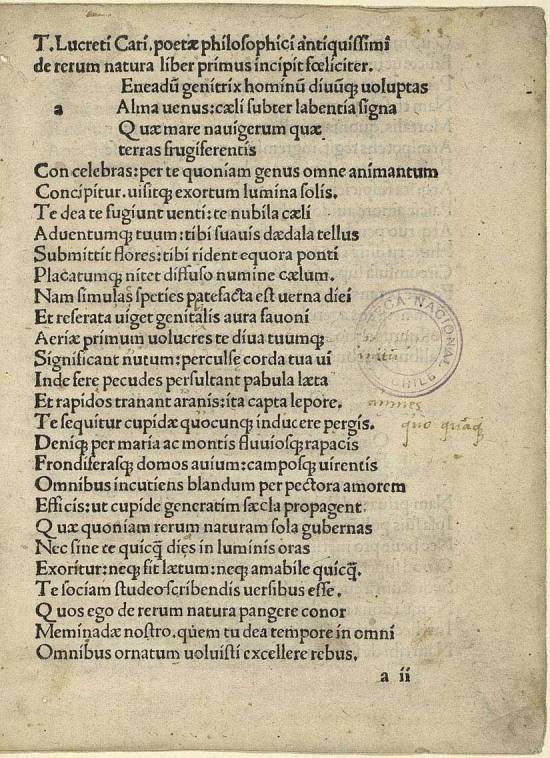 T. Lucreti Cari. poetæ philosophici antiquissimi
de rerum natura liber primus incipit fœliciter.
Eneadū genitrix hominū diuūq; uoluptas
a Alma uenus: cæli subter labentia signa
Quæ mare nauigerum quæ
terras frugiferentis
Con celebras: per te quoniam genus omne animantum
Concipitur. uisitq; exortum lumina solis.
Te dea te fugiunt uenti: te nubila cæli
Aduentumq; tuum: tibi suauis dædala tellus
Submittit flores: tibi rident equora ponti
Placatumq; nitet diffuso numine cælum.
Nam simulas speties patefacta est uerna diei
Et reserata uiget genitalis aura fauoni
Aeriæ primum uolucres te diua tuumq;
Significant nutum: perculse corda tua ui
Inde fere pecudes persultant pabula læta
Et rapidos tranant aranis: ita capta lepore.
amnes
Te sequitur cupidæ quocunq; inducere pergis.
quo quāq;
Deniq; per maria ac montis fluuiosq; rapacis
Frondiferasq; domos auium: camposq; uirentis
Omnibus incutiens blandum per pectora amorem
Efficis: ut cupide generatim sæcla propagent
Quæ quoniam rerum naturam sola gubernas
Nec sine te quicq̄ dies in luminis oras
Exoritur: neq; fit lætum: neq; amabile quicq̄.
Te sociam studeo scribendis uersibus esse.
Quos ego de rerum natura pangere conor
Meminadæ nostro. quem tu dea tempore in omni
Omnibus ornatum uoluisti excellere rebus.
a ii
CA NACIONAL
CHILE